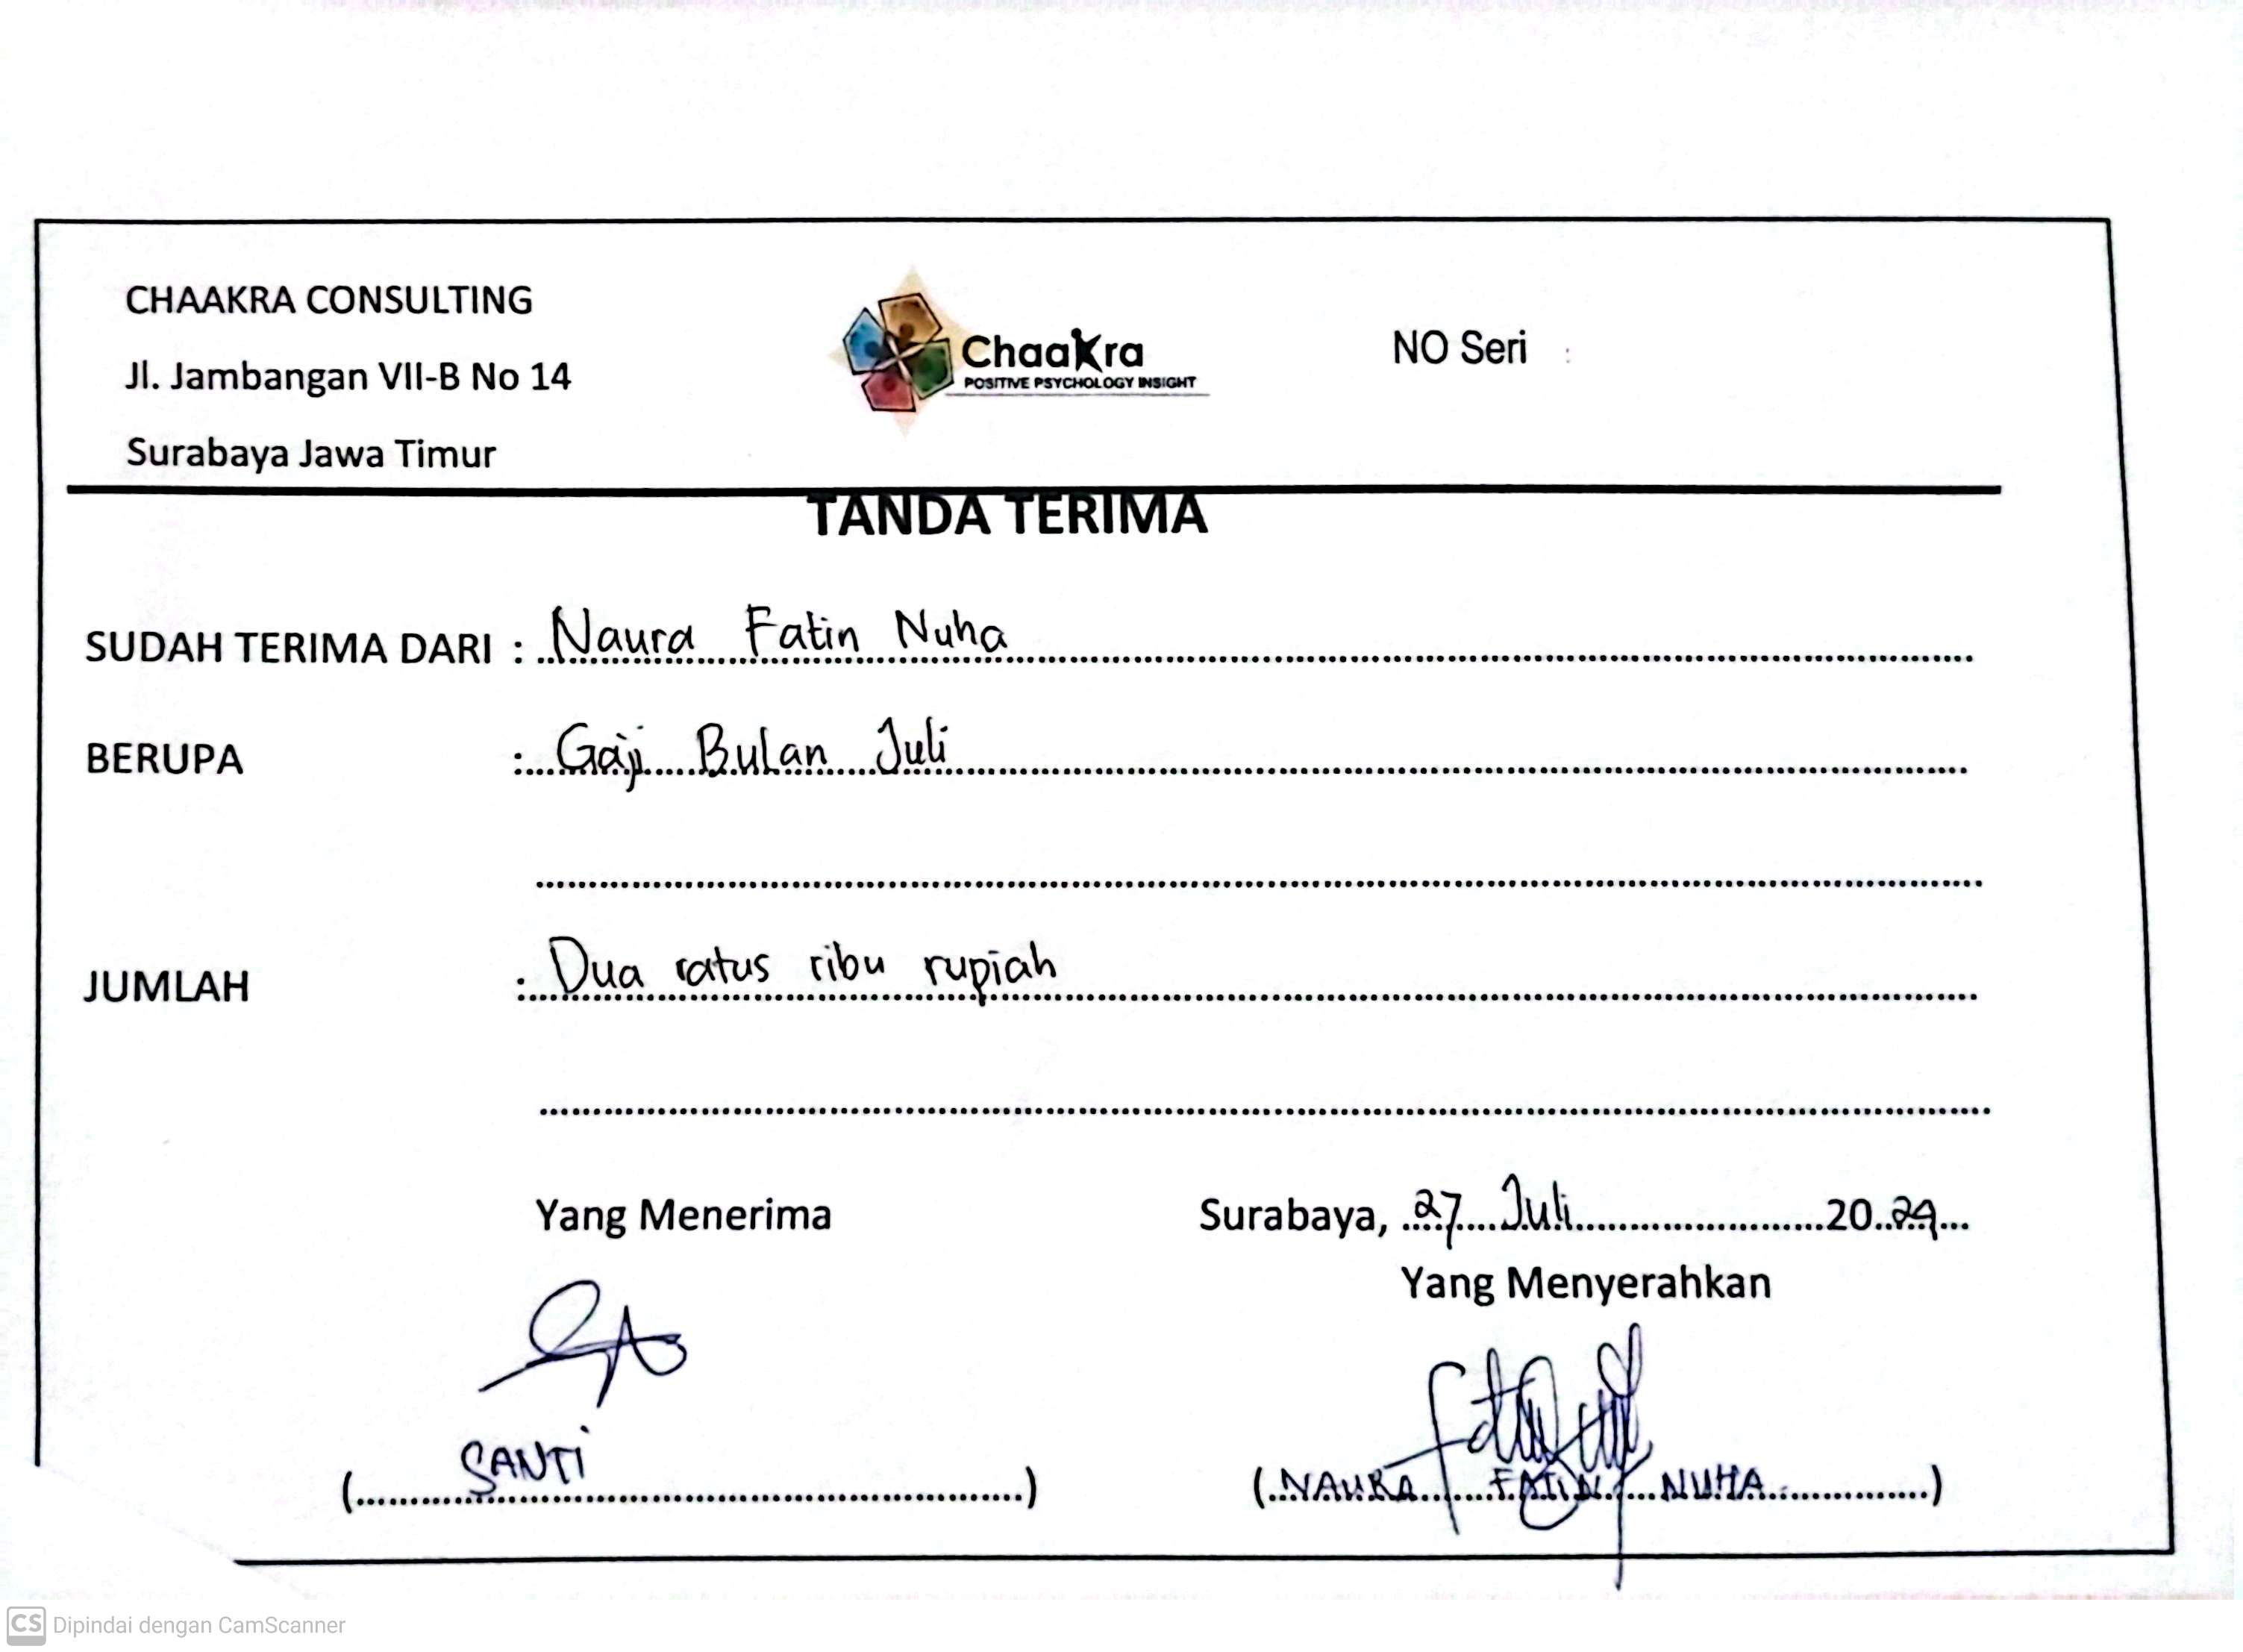 CHAAKRA CONSULTING
Jl. Jambangan VII-B No 14
Surabaya Jawa Timur
Chaakra
POSITIVE PSYCHOLOGY INSIGHT
NO Seri :
TANDA TERIMA
SUDAH TERIMA DARI : Naura Fatin Nuha
BERUPA : Gaji Bulan Juli
JUMLAH : Dua ratus ribu rupiah
Yang Menerima
Surabaya, 27 Juli 2024
Yang Menyerahkan
(SANTI)
(NAURA FATIN NUHA)
CS Dipindai dengan CamScanner